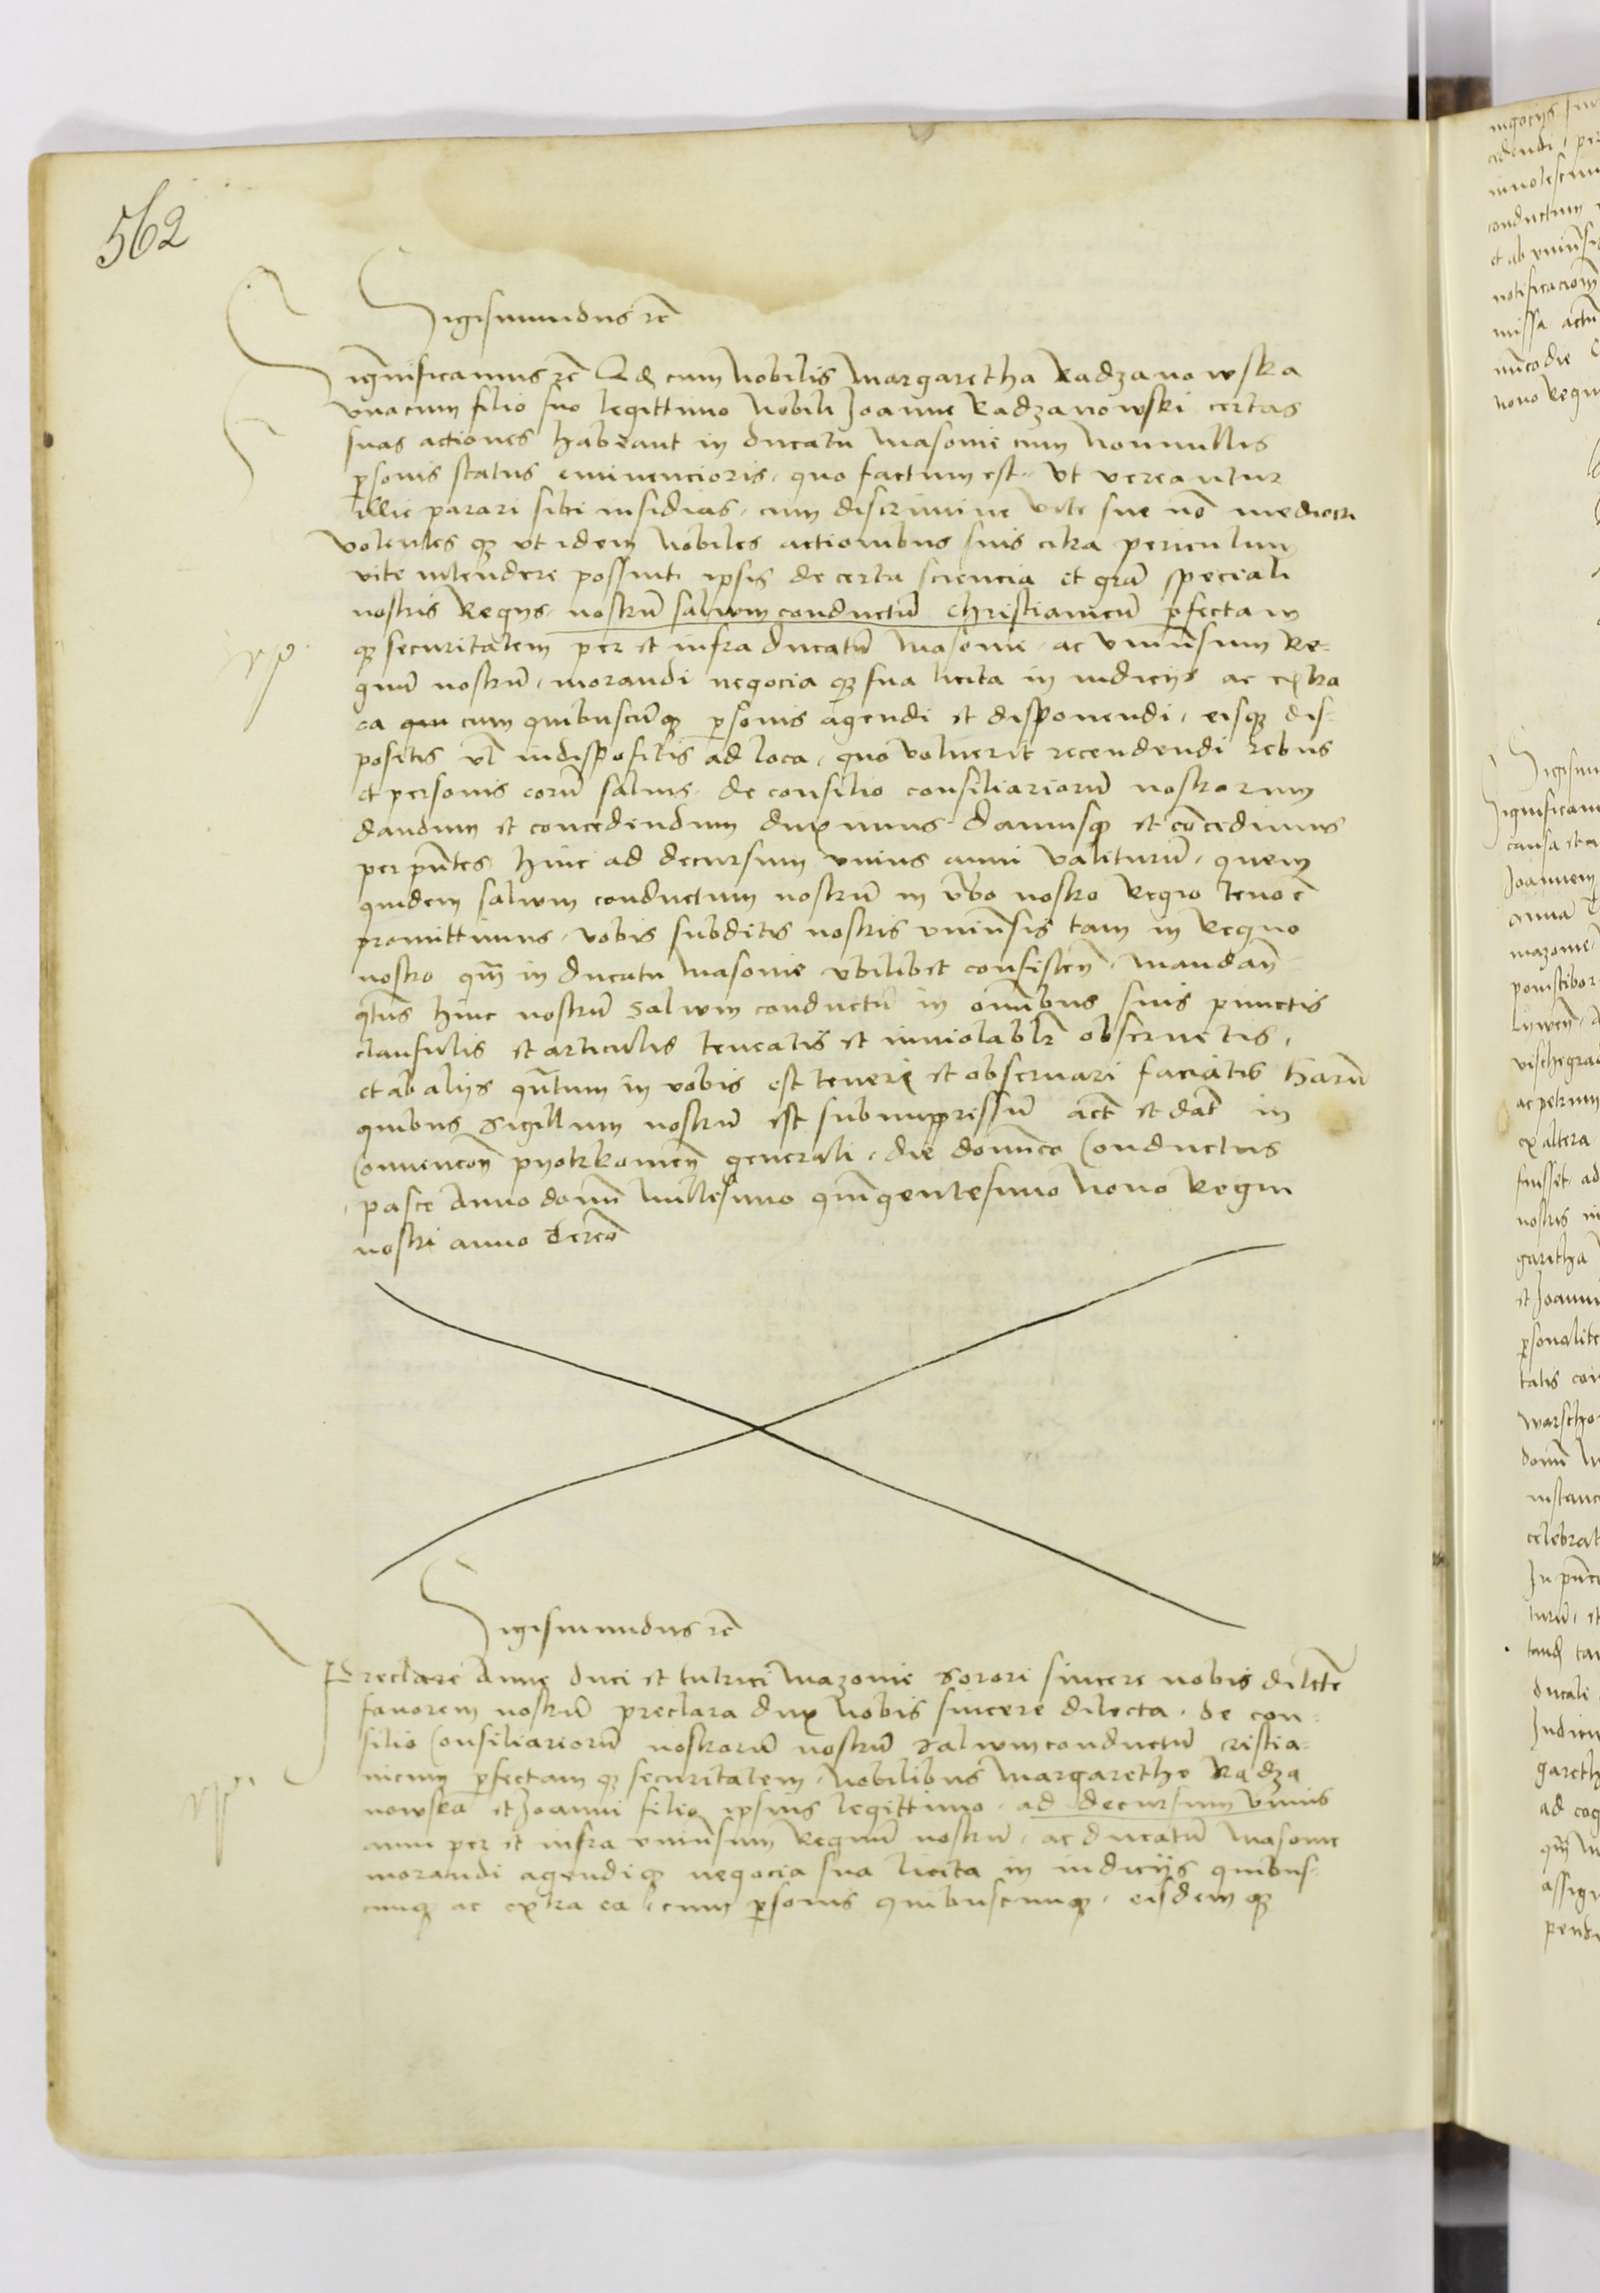 562
Sigismundus rc̃
Significamus rc̃ Qđ cum Nobilis Margaretha Radzanowska
vnacum filio suo legittimo Nobili Joanne Radzanowski certas
suas actiones habeant in ducatu Masovie cum Nonnullis
psonis status eminencioris, quo factum est, vt vereantur
illic parari sibi insidias, cum discrimine vite sue nō mediocri
Volentes qȝ vt idem Nobiles actionibus suis citra periculum
vite intendere possint, ipsis de certa sciencia et grā speciali
nostris Regijs, nostrū salwmconductū christianicū pfectam
qȝ securitatem per et infra ducatū Masovie, ac vniūsum Re-
gnū nostrū, morandi negocia qȝ sua licita in iudicijs ac extra
ea cum quibuscūqȝ psonis agendi et disponendi, eisqȝ dis-
positis vl indispositis ad loca, quo voluerit recendendi rebus
et personis eorū salvis, de consilio consiliariorū nostrorum
dandum et concedendum duximus damusqȝ et cōcedimus
per pñtes, hinc ad decursum vnius anni valiturū, quem
quidem salwm conductum nostrū in v̄bo nostro Regio tenoē
promittimus, vobis subditis nostris vniūsis tam in Regno
nostro qm̄ in ducatu Masovie vbilibet consisteñ, mandañ
qtus hinc nostrū salwm conductū in om̄ibus suis punctis
clausulis et articulis teneatis et inviolablr observetis,
et ab alijs qñtum in vobis est teneri et observari faciatis harū
quibus Sigillum nostrū est subimpressū act et dat in
Convencoñ pyotrkovieñ generali, die domīco Conductus
pasce Anno domī Millesimo qūigentesimo Nono Regni
nostri anno tercō
Sigismundus rc̃
Preclare Anne duci et tutrici Mazovie Sorori sincere nobis dilcte
favorem nostrū preclara dux Nobis sincere dilecta, de con-
silio Consiliariorū nostrorū nostrū salwmconductū cristia-
nicum pfectam qȝ securitatem, Nobilibus Margarethe Radza
nowska et Joanni filio ipsius legittimo, ad decursum vnius
anni per et infra vniūsum Regnū nostrū, ac ducatū Masovie
morandi agendiqȝ negocia sua licita in iudicijs quibus-
cunqȝ ac extra ea, cum psonis quibuscunqȝ, eisdem qȝ